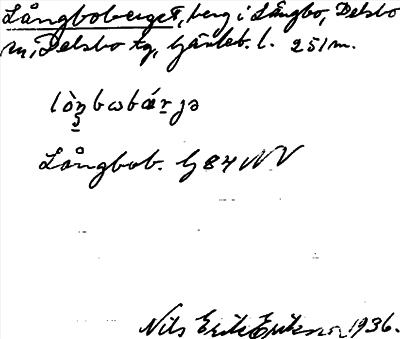 Långboberget, berg i Långbo, Delsbo
sn, Delsbo tg, Gävleb. l. 251 m.
lòŋbωbár̠jə
Långbob. G 84 NV
Nils Erik Erikson 1936.